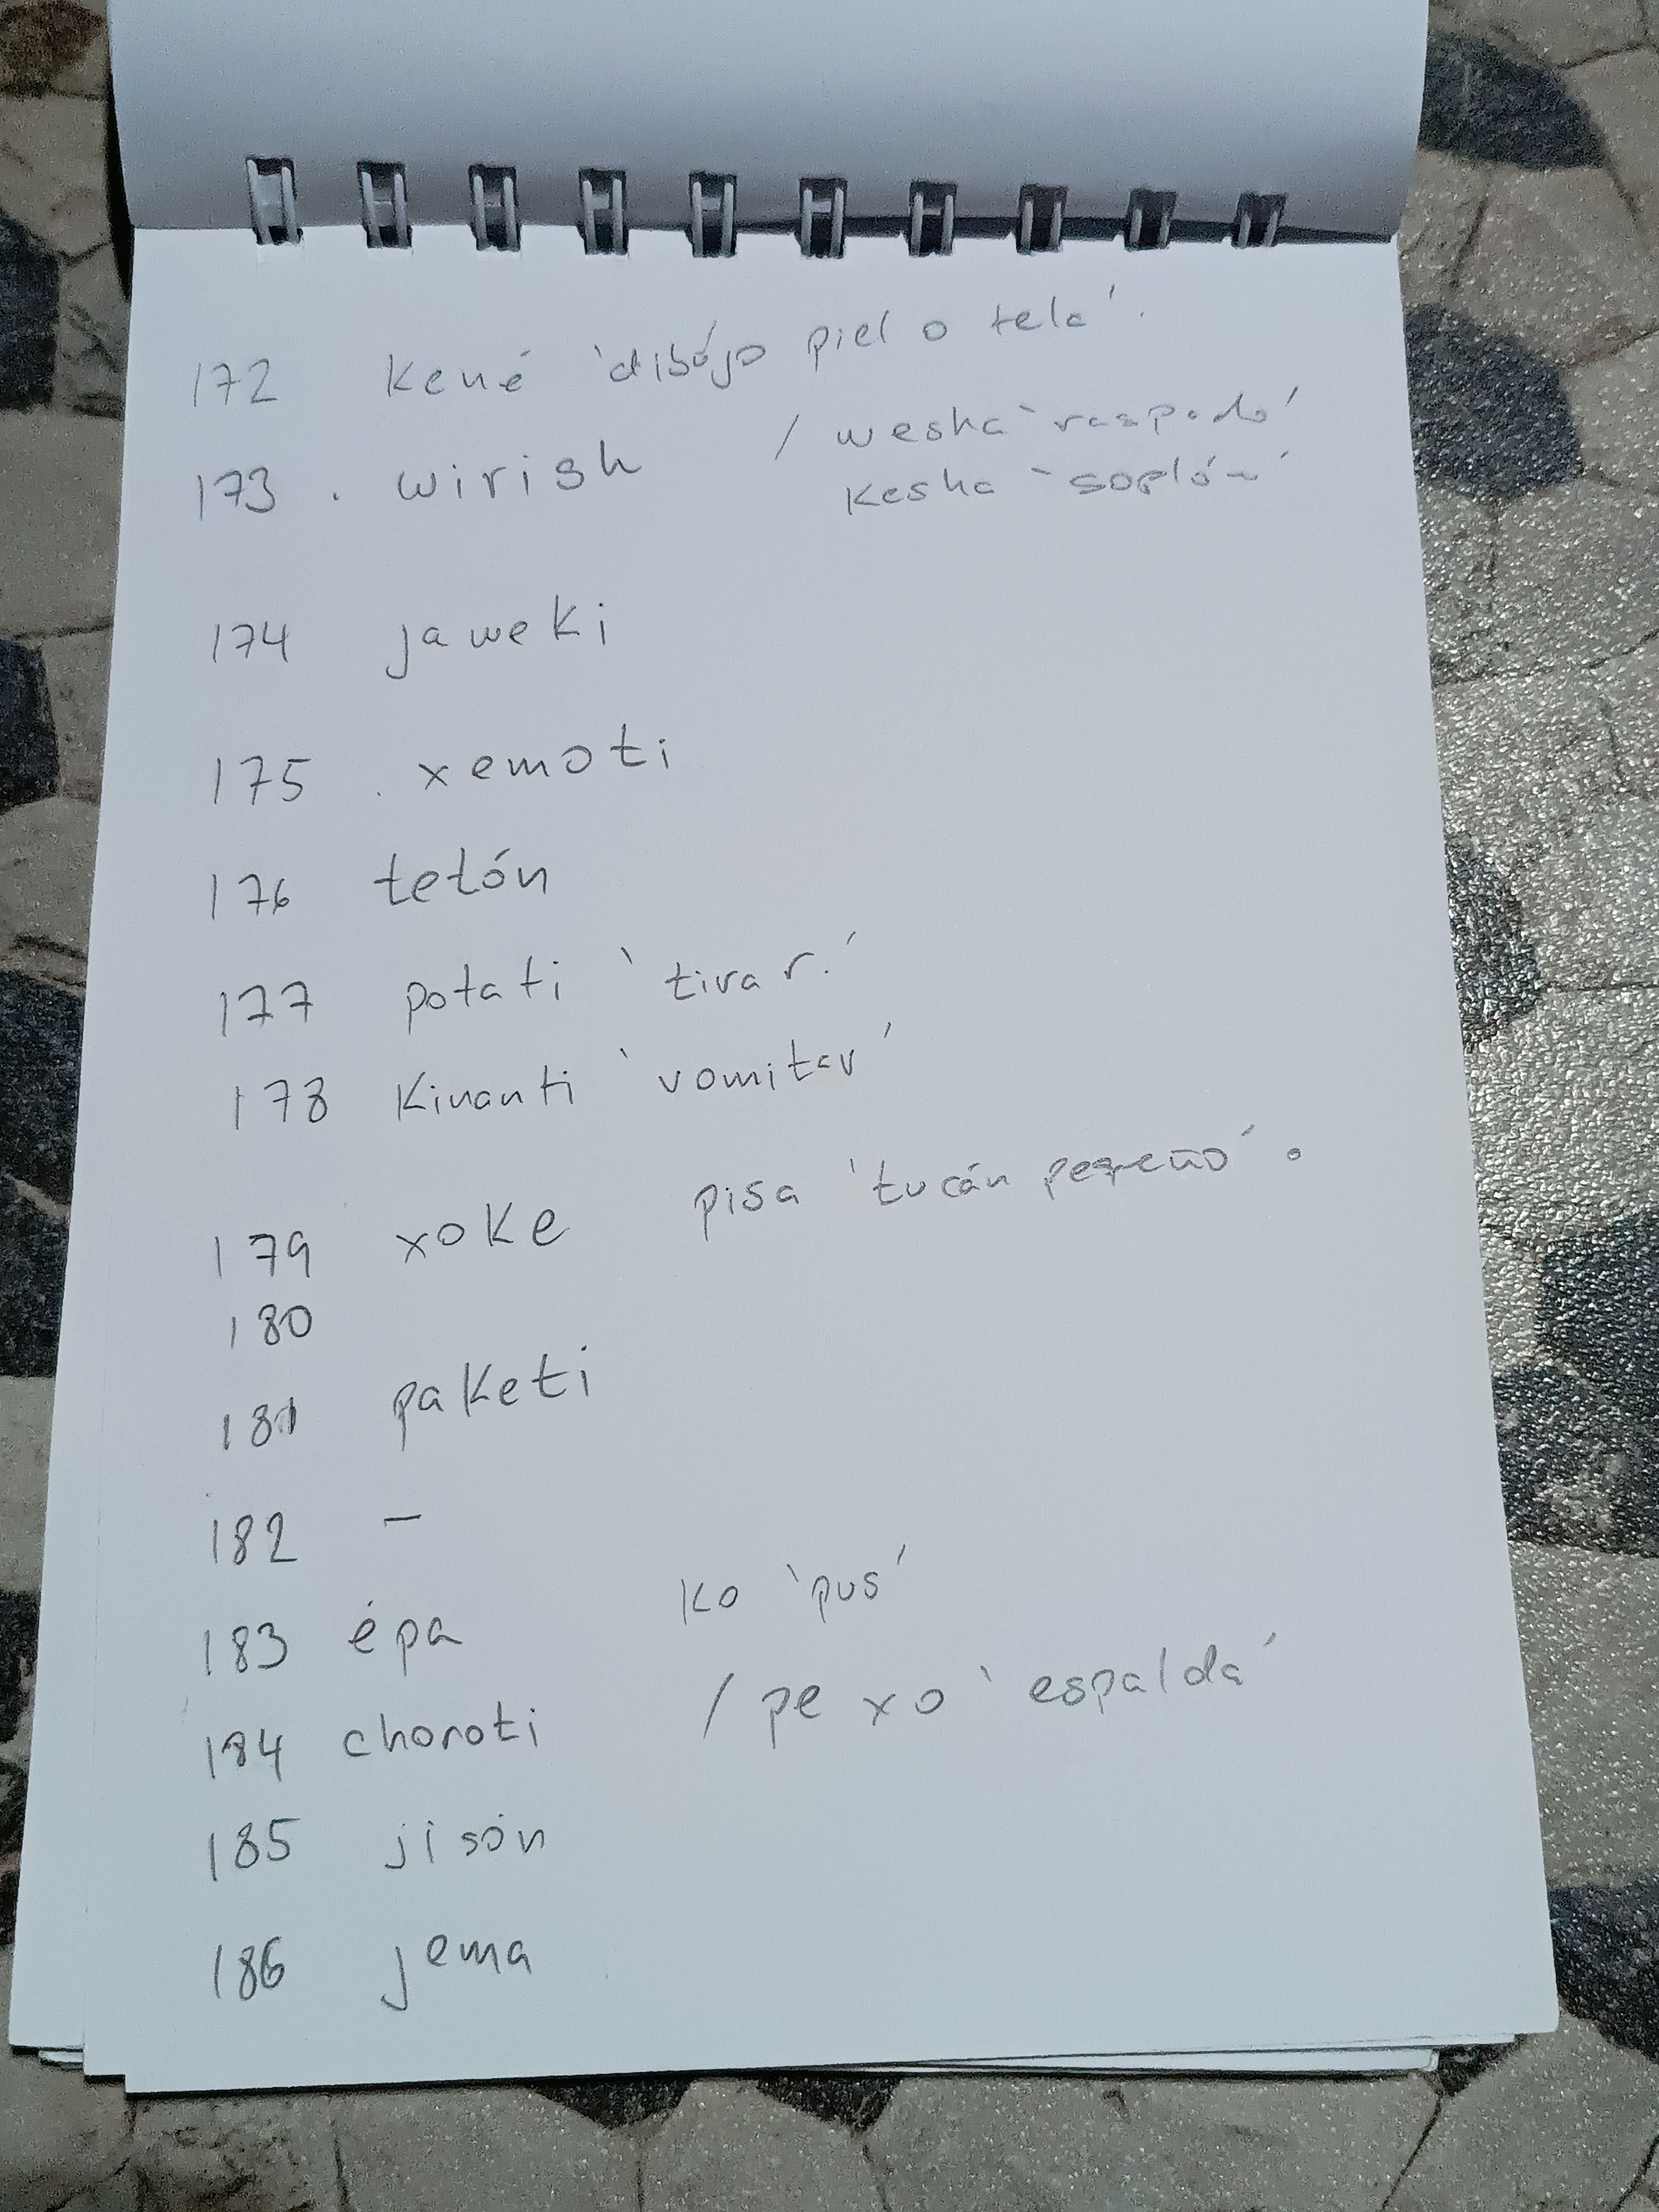 172 Kené 'dibújo piel o tela'.
173 . wirish / wesha 'raspado'
kesha 'soplón'
174 jaweki
175 . xemoti
176 tetón
177 potati 'tirar.'
178 Kinanti 'vomitar'
179 xoke pisa 'tucán pequeño'.
180
181 paketi
182 –
183 épa ko 'pus'
184 choroti / pe xo 'espalda'
185 jisón
186 jema